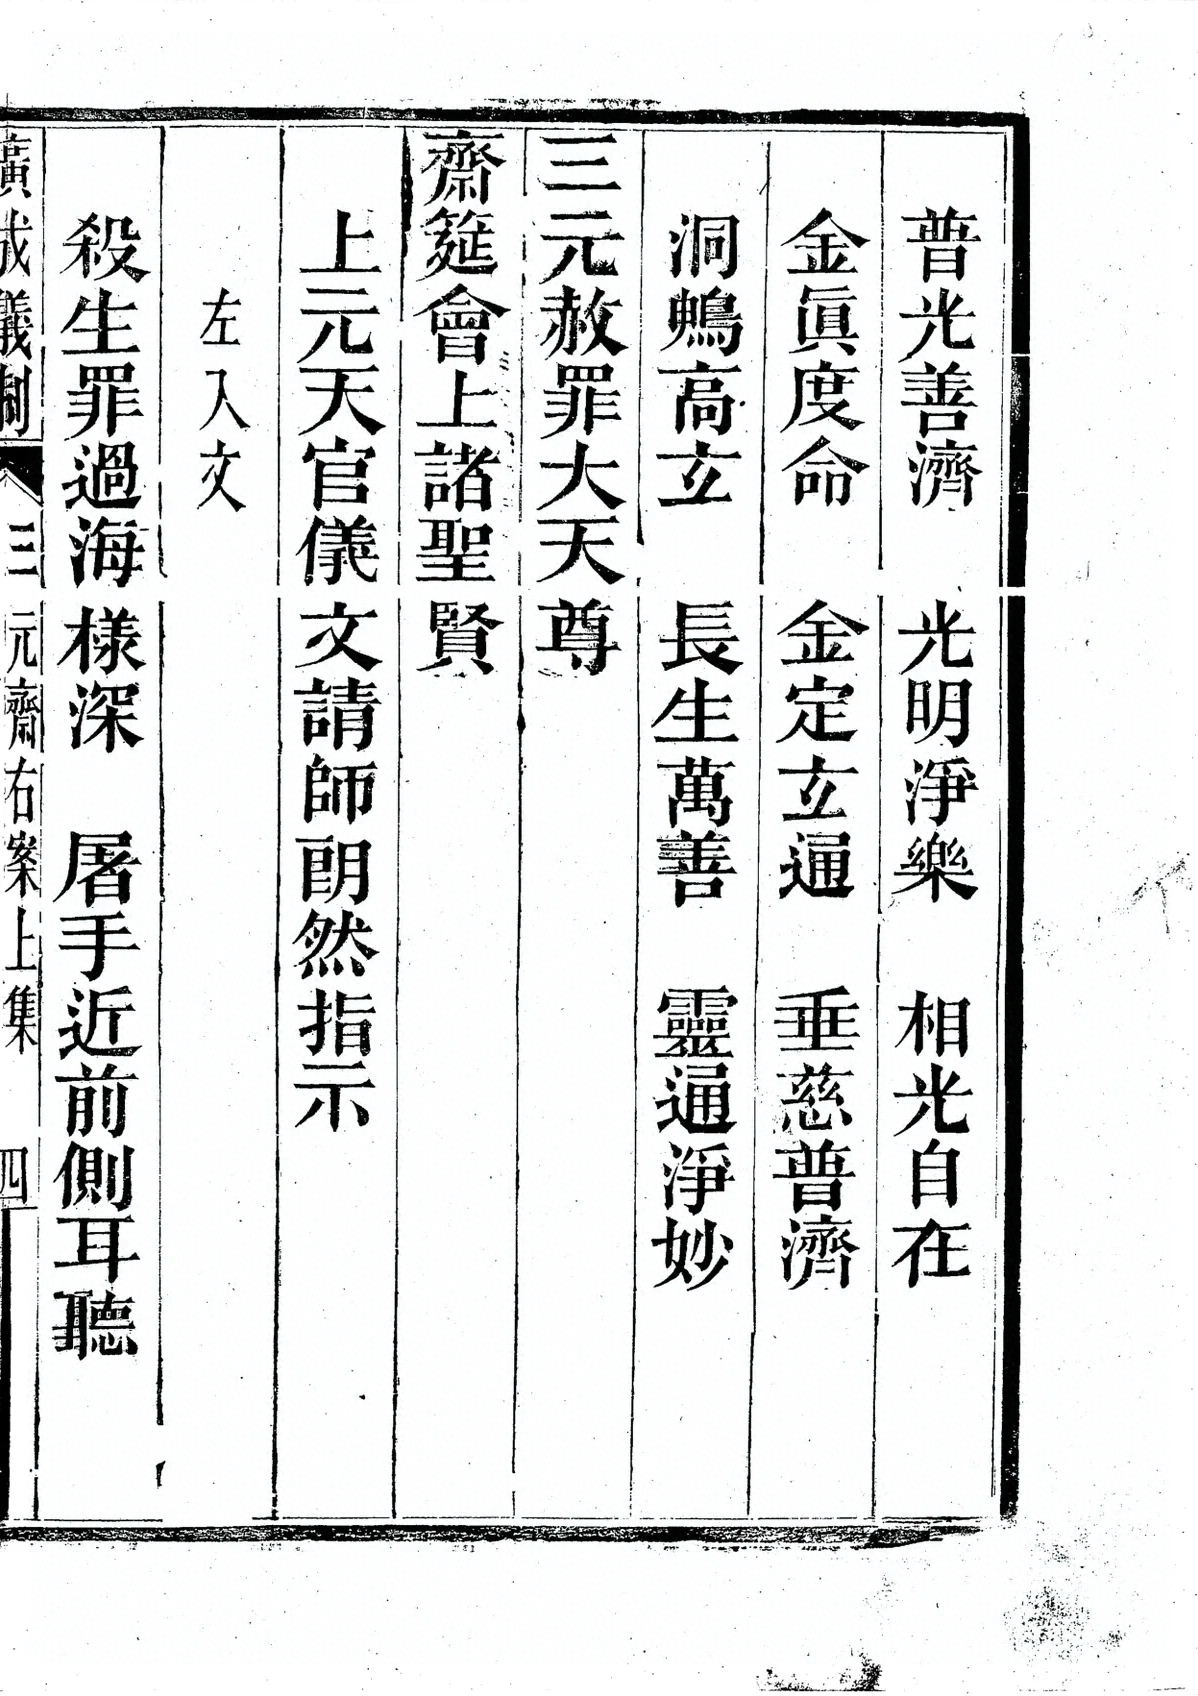 普光善濟　光明淨樂　相光自在
金眞度命　金定玄通　垂慈普濟
洞鳴高玄　長生萬善　靈通淨妙
三元赦罪大天尊
齋筵會上諸聖賢
上元天官儀文請師朗然指示
左入文
殺生罪過海樣深　屠手近前側耳聽
廣成儀制　三元齋右案上集　四